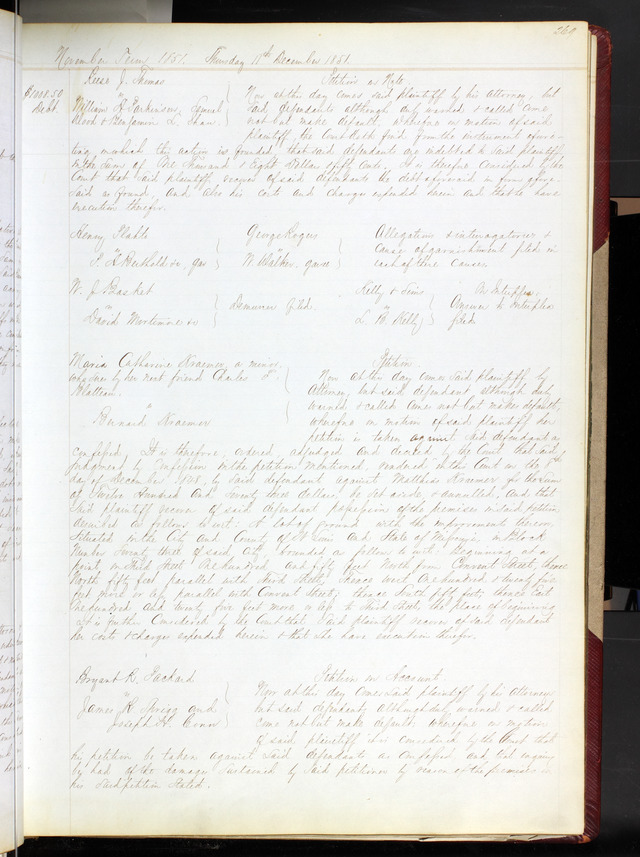 269
November Term 1851. Thursday 11th December 1851.
J. Thomas
Petition on Note.
$1008.50
Debt.
vs
William H. Parkinson, Samuel
Wood & Benjamin L. Shaw.
Now at this day comes said plaintiff by his attorney, but
said defendants although duly warned & called come
not but make default, wherefore on motion of said
plaintiff, the Court doth find from the instrument of
writing on which the action is founded that said defendants are indebted to said plaintiff
in the sum of One Thousand & Eight Dollars & fifty cents. It is therefore considered by the
Court that said plaintiff recover of said defendants the debt aforesaid in form afore-
said as found, and also his costs and charges expended herein and that he have
execution therefor.
Henry
vs
George Rogers
vs
W. Walker, garee
Allegations & interrogatories &
cause of garnishment filed in
each of these causes.
W. J.
vs
David Mortimore
Demurrer filed.
Kelly & Sims
vs
L. W. Kelly
An Interplea.
Answer to Interplea
filed.
Maria Catharine Kraemer, a minor,
who sues by her next friend Charles F.
vs
Bernard Kraemer
Petition.
Now at this day comes said plaintiff by
Attorney, but said defendant although duly
warned & called comes not but makes default,
wherefore on motion of said plaintiff her
petition is taken against said defendant as
confessed. It is therefore, ordered, adjudged and decreed by the Court that said
judgment by confession in the petition mentioned, rendered in this Court on the
day of December 1848, by said defendant against Matthias Kraemer for the sum
of Twelve Hundred and seventy three dollars, be set aside & annulled. And that
said plaintiff recover of said defendant possession of the premises in said petition
described as follows to wit: A lot of ground with the improvements thereon
situated in the City and County of St Louis and State of Missouri, in Block
Number Twenty three of said City, bounded as follows to wit: Beginning at a
point on Third Street One hundred and fifty feet North from Convent Street, thence
North fifty feet parallel with Third Street, thence west One hundred & twenty five
feet more or less parallel with Convent Street; thence South fifty feet; thence East
one hundred and twenty five feet more or less to Third Street the place of beginning.
It is further Considered by the Court that said plaintiff recover of said defendant
her costs & charges expended herein & that she have execution therefor.
Bryant R. Packard
vs
James R. Sprigg and
Joseph W. Conn
Petition on Account.
Now at this day comes said plaintiff by his Attorney
but said defendants although duly warned & called
come not but make default, wherefore on motion
of said plaintiff it is considered by the Court that
his petition be taken against said defendants as confessed, and that enquiry
be had of the damages sustained by said petitioner by reason of the premises in
his said petition stated.